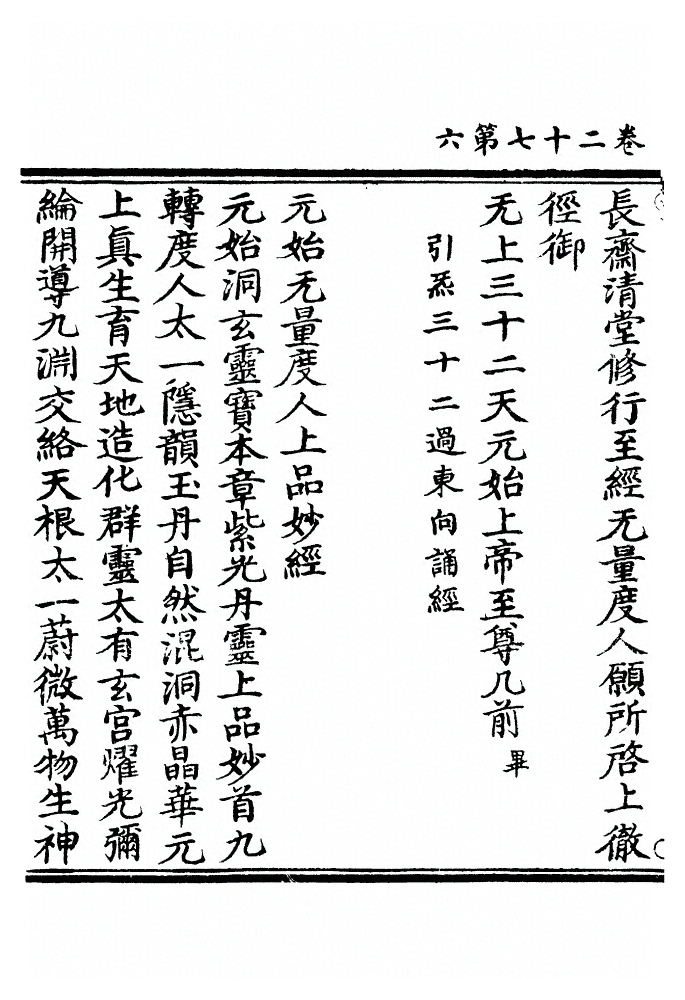 卷二十七第六
長齋清堂修行至經无量度人願所啓上徹
徑御
无上三十二天元始上帝至尊几前畢
引炁三十二過東向誦經
元始无量度人上品妙經
元始洞玄靈寶本章紫光丹靈上品妙首九
轉度人太一隱韻玉丹自然混洞赤晶華元
上真生育天地造化群靈太有玄宮耀光彌
綸開導九淵交絡天根太一蔚微萬物生神